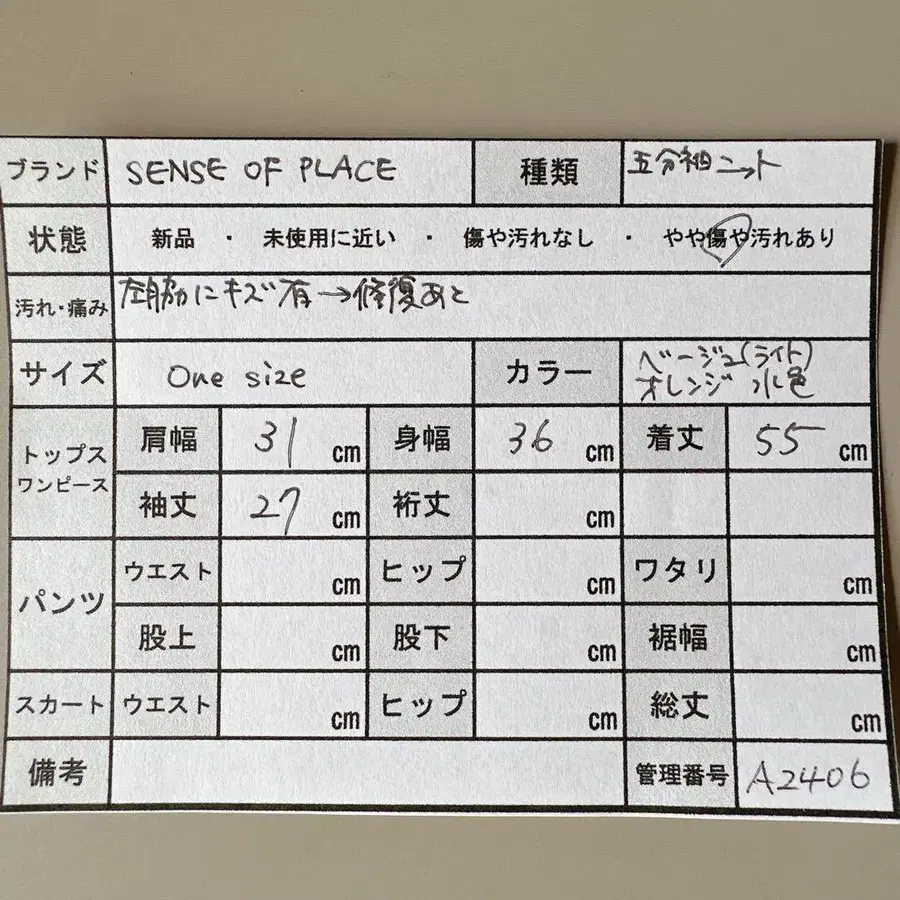 ブランド SENSE OF PLACE 種類 五分袖ニット
状態 新品 ・ 未使用に近い ・ 傷や汚れなし ・ やや傷や汚れあり
汚れ・痛み 左脇にキズ有→修復あと
サイズ One size カラー ベージュ(ライト)
オレンジ 水色
トップス
ワンピース
肩幅 31 cm 身幅 36 cm 着丈 55 cm
袖丈 27 cm 裄丈 cm
パンツ
ウエスト cm ヒップ cm ワタリ cm
股上 cm 股下 cm 裾幅 cm
スカート ウエスト cm ヒップ cm 総丈 cm
備考 管理番号 A2406